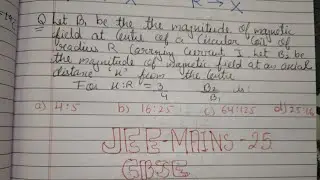 R → X
Q Let B₁ be the the magnitude of magnetic
field at centre of a circular coil of
readius R carrying current I. Let B₂ be
the magnitude of magnetic field at an axial
distance 'x' from the centre
For x:R = 3/4 B₂/B₁ is:
a) 4:5 b) 16:25 c) 64:125 d) 25:16
JEE-MAINS-25
CBSE